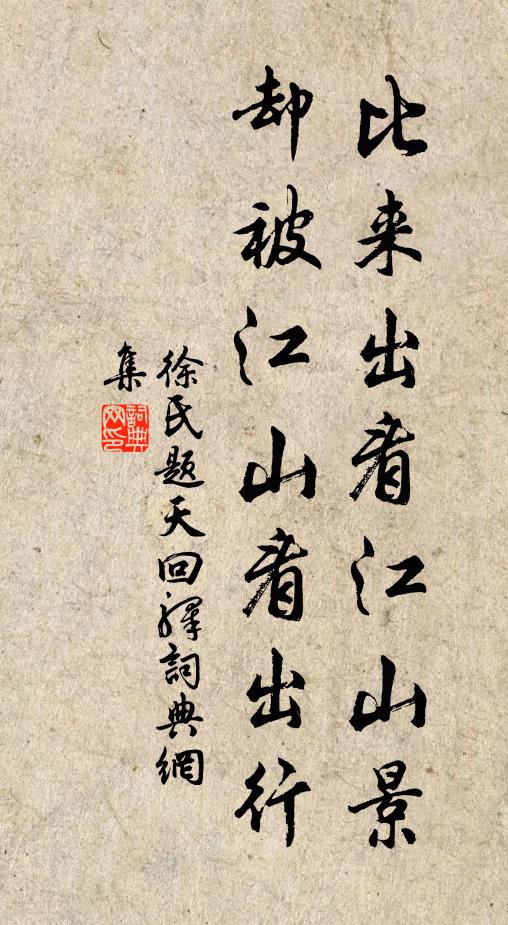 比来出看江山景
却被江山看出行
徐氏题天回驿詞典網
集
詞典網印